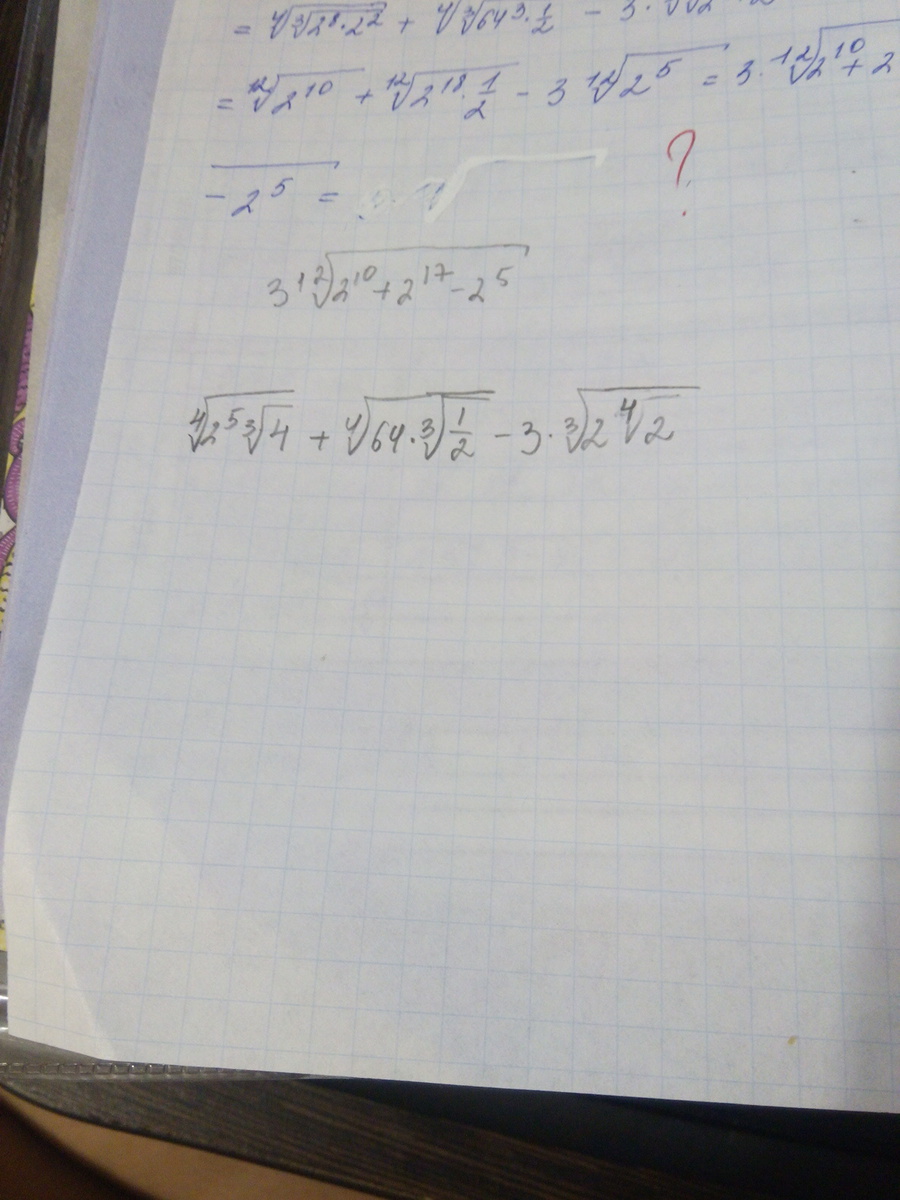 = ⁴√(³√(2⁸·2²)) + ⁴√(³√(64³·1/2)) − 3·
= ¹²√(2¹⁰) + ¹²√(2¹⁸·1/2) − 3 ¹²√(2⁵) = 3·¹²√(2¹⁰ + 2
− 2⁵ =
?
3 ¹²√(2¹⁰ + 2¹⁷ − 2⁵)
⁴√(2⁵ ³√4) + ⁴√(64·³√(1/2)) − 3·³√(2 ⁴√2)